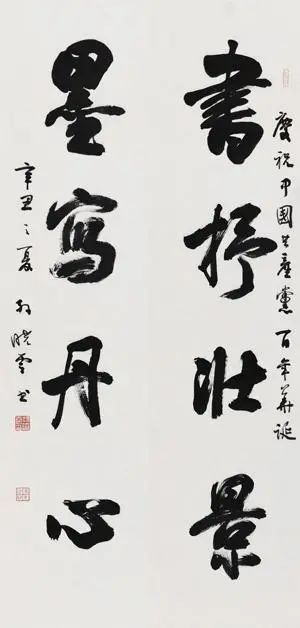 慶祝中國共產黨百年華誕
書抒壯景
墨寫丹心
辛丑之夏 孫曉雲書